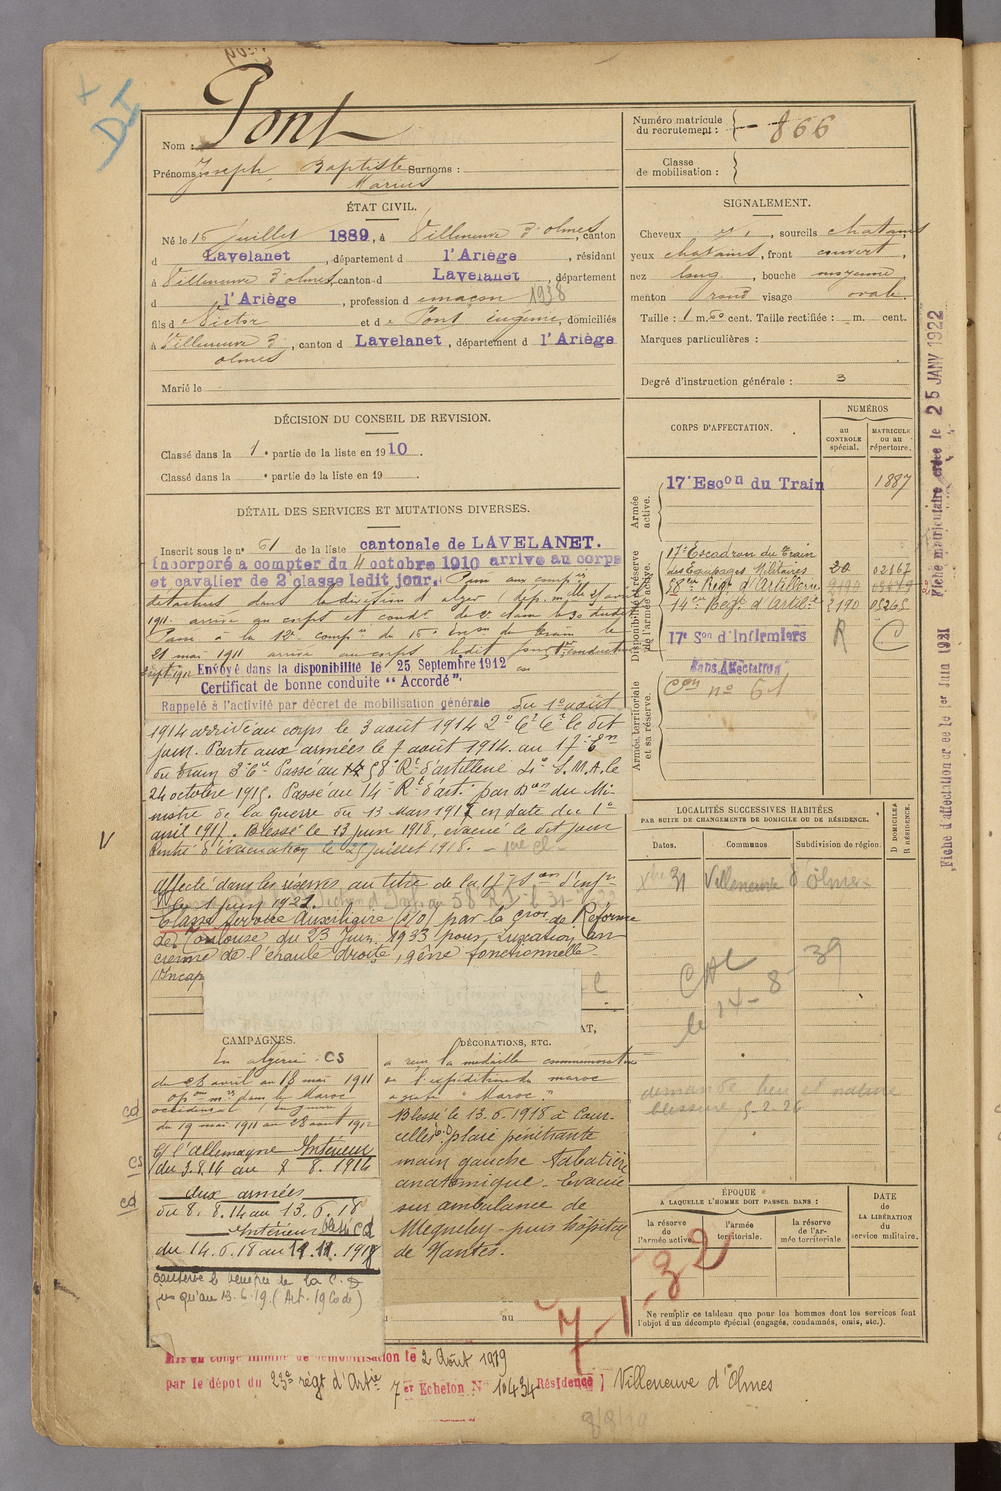 Nom : Pont
Prénoms : Joseph, Baptiste Surnoms :
Marius
Numéro matricule
du recrutement : 866
Classe
de mobilisation :
ÉTAT CIVIL.
Né le 15 juillet 1889, à Villeneuve d'olmes, canton
d Lavelanet, département d l'Ariège, résidant
à Villeneuve d'olmes, canton d Lavelanet, département
d l'Ariège, profession d maçon 1938
fils d Victor et d Pont Eugénie, domiciliés
à Villeneuve d', canton d Lavelanet, département d l'Ariège
olmes
Marié le
SIGNALEMENT.
Cheveux et, sourcils chatains,
yeux chatains, front couvert,
nez long, bouche moyenne,
menton rond visage ovale.
Taille : 1 m. cent. Taille rectifiée : m. cent.
Marques particulières :
Degré d'instruction générale : 3
DÉCISION DU CONSEIL DE REVISION.
Classé dans la 1e partie de la liste en 1910.
Classé dans la e partie de la liste en 19 .
DÉTAIL DES SERVICES ET MUTATIONS DIVERSES.
Inscrit sous le n° 61 de la liste cantonale de LAVELANET.
Incorporé à compter du 4 octobre 1910 arrivé au corps
et cavalier de 2e classe ledit jour. Passé aux compies
détachées dans la division d'alger
1911. arrivé au corps et condr de 2e classe le 30 dudit
Passé à la 12e compie du 15e escon du Train le
21 mai 1911 arrivé au corps ledit jour, 1er conducteur
Envoyé dans la disponibilité le 25 Septembre 1912
Certificat de bonne conduite "Accordé"
Rappelé à l'activité par décret de mobilisation générale du 1er août
1914 arrivé au corps le 3 août 1914 2e Cr Cl le dit
jour. Parti aux armées le 7 août 1914. au 17e En
du train 3e Cie Passé au 58e Rt d'artillerie S.M.A. le
24 octobre 1915. Passé au 14e Rt d'art. par Don du Mi-
nistre de la Guerre du 13 Mars 1917 en date du 1er
avril 1917. Blessé le 13 juin 1918, évacué le dit jour
Rentré d'évacuation le 25 juillet 1918.
Affecté dans les réserves au titre de la 17e Son d'Infrs
le 1 juin 1921.
Classé Service Auxiliaire (s/o) par la Cion de Réforme
de Toulouse du 23 Juin 1933 pour Luxation an-
cienne de l'épaule droite, gêne fonctionnelle
Incap
CORPS D'AFFECTATION.
NUMÉROS
au
CONTROLE
spécial.
MATRICULE
ou au
répertoire.
Armée
active.
17e Escon du Train 1887
Disponibilité et réserve
de l'armée active.
17e Escadron du Train
des Equipages Militaires 20 02167
58eme Regt d'Artillerie
14eme Regt d'Artie 2190 05265
17e Son d'Infirmiers R C
Armée territoriale
et sa réserve.
Sans Affectation
Con no 61
LOCALITÉS SUCCESSIVES HABITÉES
PAR SUITE DE CHANGEMENTS DE DOMICILE OU DE RÉSIDENCE.
Dates.
Communes.
Subdivision de région.
D DOMICILE
R RÉSIDENCE.
Xbre 31 Villeneuve d'Olmes
le 14-8-39
demande lieu et nature
blessure 5-2-26
CAMPAGNES.
En algérie. CS
du 28 avril au 18 mai 1911
opons mres dans le Maroc
occidental
du 19 mai 1911 au 28 aout 1912
C/ l'allemagne Intérieur
du 3.8.14 au 7 8. 1914
aux armées
du 8. 8. 14 au 13. 6. 18
Intérieur
du 14. 6. 18 au
conserve le bénéfice de la C.D
jusqu'au 13.6.19. (Art. 19 Code)
cd
cs
cd
DÉCORATIONS, ETC.
a reçu la médaille commémorative
de l'expédition du maroc
agrafe "Maroc."
Blessé le 13.6.1918 à Cour-
celles plaie pénétrante
main gauche tabatière
anatomique. Evacué
sur ambulance de
Megneley - puis hôpital
de Nantes.
au
7-1-32
ÉPOQUE
A LAQUELLE L'HOMME DOIT PASSER DANS :
la réserve
de
l'armée active.
l'armée
territoriale.
la réserve
de l'ar-
mée territoriale
DATE
de
LA LIBÉRATION
du
service militaire.
Ne remplir ce tableau que pour les hommes dont les services font
l'objet d'un décompte spécial (engagés, condamnés, omis, etc.).
Mis en congé illimité de démobilisation le 2 Août 1919
par le dépot du 23e régt d'Artie 7er Echelon No 10434 Résidence : Villeneuve d'Olmes
Fiche matriculaire créée le 25 JANV 1922
Fiche d'affectation créée le 1er Juin 1931